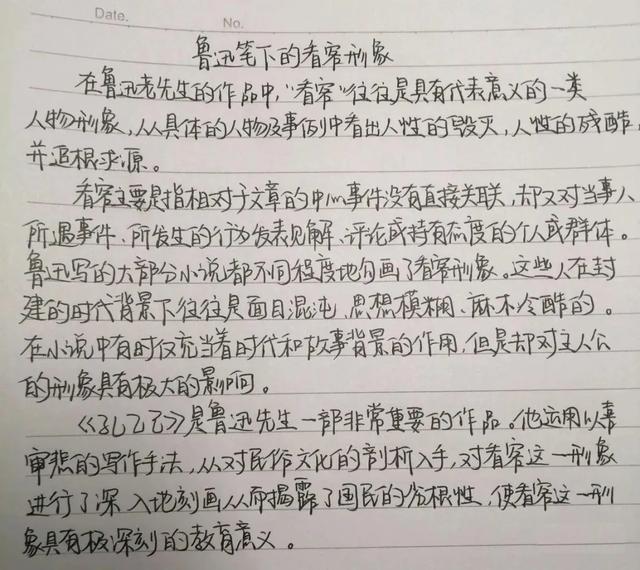 Date.
No.
鲁迅笔下的看客形象
在鲁迅老先生的作品中,“看客”往往是具有代表意义的一类
人物形象,从具体的人物及事例中看出人性的毁灭,人性的残酷,
并追根求源。
看客主要是指相对于文章的中心事件没有直接关联,却又对当事人
所遇事件、所发生的行为发表见解、评论或持有态度的个人或群体。
鲁迅写的大部分小说都不同程度地勾画了看客形象。这些人在封
建的时代背景下往往是面目混沌、思想模糊、麻木冷酷的。
在小说中有时仅充当着时代和故事背景的作用,但是却对主人公
的形象具有极大的影响。
《孔乙己》是鲁迅先生一部非常重要的作品。他运用以喜
审悲的写作手法,从对民俗文化的剖析入手,对看客这一形象
进行了深入地刻画从而揭露了国民的劣根性,使看客这一形
象具有极深刻的教育意义。